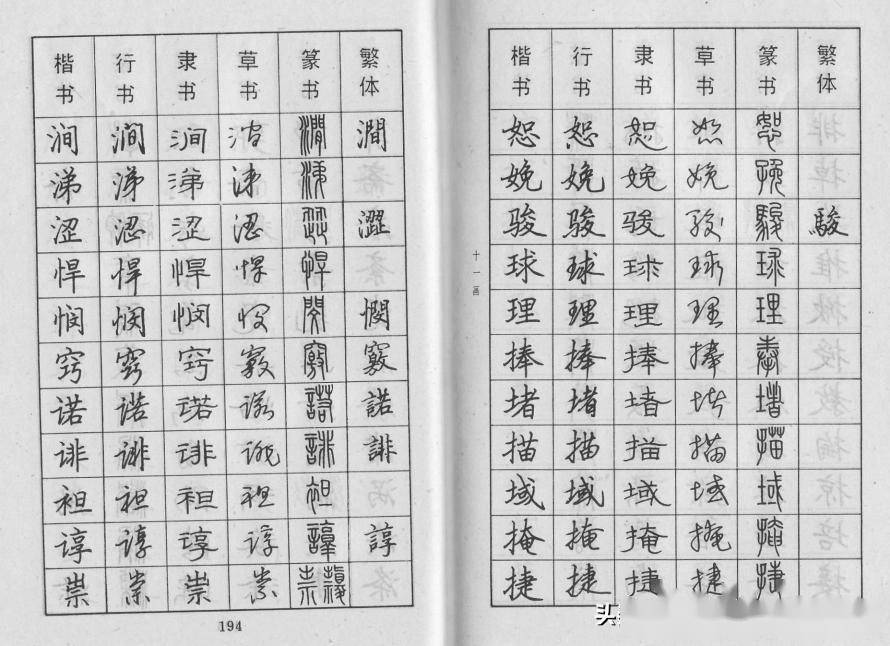 楷书 行书 隶书 草书 篆书 繁体
涧 涧 涧 涧 澗 澗
涕 涕 涕 涕 涕
涩 涩 涩 涩 澀 澀
悍 悍 悍 悍 悍
悯 悯 悯 悯 閔 憫
窍 窍 窍 竅 竅 竅
诺 诺 诺 诺 諾 諾
诽 诽 诽 诽 誹 誹
袒 袒 袒 袒 袒
谆 谆 谆 谆 諄 諄
祟 祟 祟 祟 祟
194
十一画
楷书 行书 隶书 草书 篆书 繁体
恕 恕 恕 恕 恕
娩 娩 娩 娩 娩
骏 骏 骏 骏 駿 駿
球 球 球 球 球
理 理 理 理 理
捧 捧 捧 捧 奉
堵 堵 堵 堵 堵
描 描 描 描 描
域 域 域 域 域
掩 掩 掩 掩 掩
捷 捷 捷 捷 捷
头